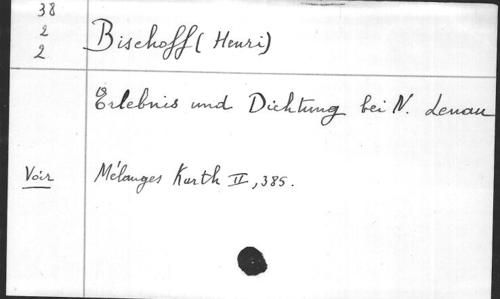 38
2
2
Bischoff (Henri)
Erlebnis und Dichtung bei N. Lenau
Voir
Mélanges Kurth II, 385.